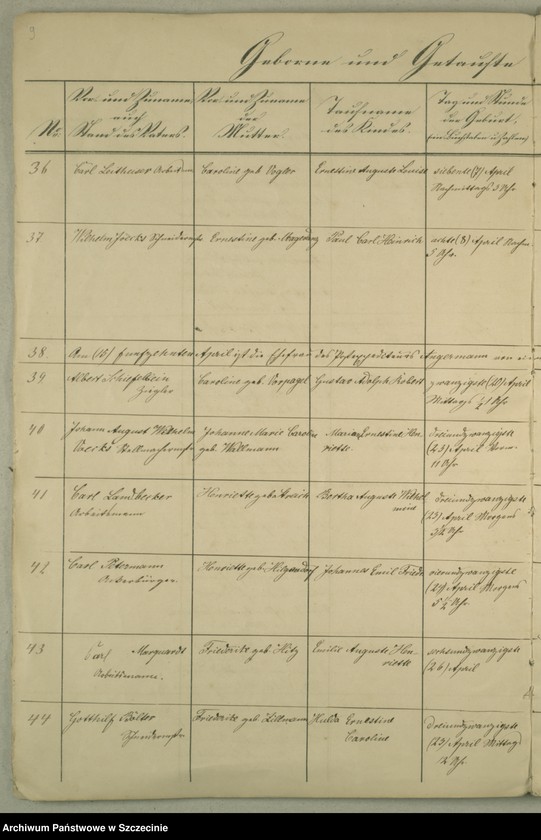 9
Geborne und Getaufte
No.
Vor- und Zuname
auch
Stand des Vaters.
Vor- und Zuname
der
Mutter.
Taufname
des Kindes.
Tag und Stunde
der Geburt.
(in Buchstaben u. Zahlen)
36
Carl
Caroline geb. Vogler
Ernestine Auguste Louise
siebente (7) April
Nachmittags 3 Uhr
37
Wilhelm
Ernestine geb.
Paul Carl Heinrich
achte (8) April Nachm
5 Uhr.
38.
Am (15) funfzehnten April ist die Ehefrau des Postexpediteurs Angermann von
39
Albert Schiefelbein
Ziegler
Caroline geb.
Gustav Adolph Robert
zwanzigste (20) April
Mittags 1 Uhr
40
Johann August Wilhelm
Johanne Marie Caroline
geb. Wallmann
Maria Ernestine Hen-
riette
dreiundzwanzigste
(23) April Vorm
11 Uhr
41
Carl
Arbeitsmann
Henriette geb.
Bertha Auguste Wilhel
mine
dreiundzwanzigste
(23) April Morgens
Uhr
42
Carl Petermann
Ackerbürger
Henriette geb. Hilgendorf
Johannes Emil
vierundzwanzigste
(24) April Morgens
5 ½ Uhr
43
Carl Marquardt
Arbeitsmann.
Friederike geb. Hitz
Emilie Auguste Hen-
riette
sechsundzwanzigste
(26) April
44
Gotthilf
Schneidermstr
Friederike geb. Zillmann
Hulda Ernestine
Caroline
dreiundzwanzigste
(23) April Mittag
12 Uhr
Archiwum Państwowe w Szczecinie